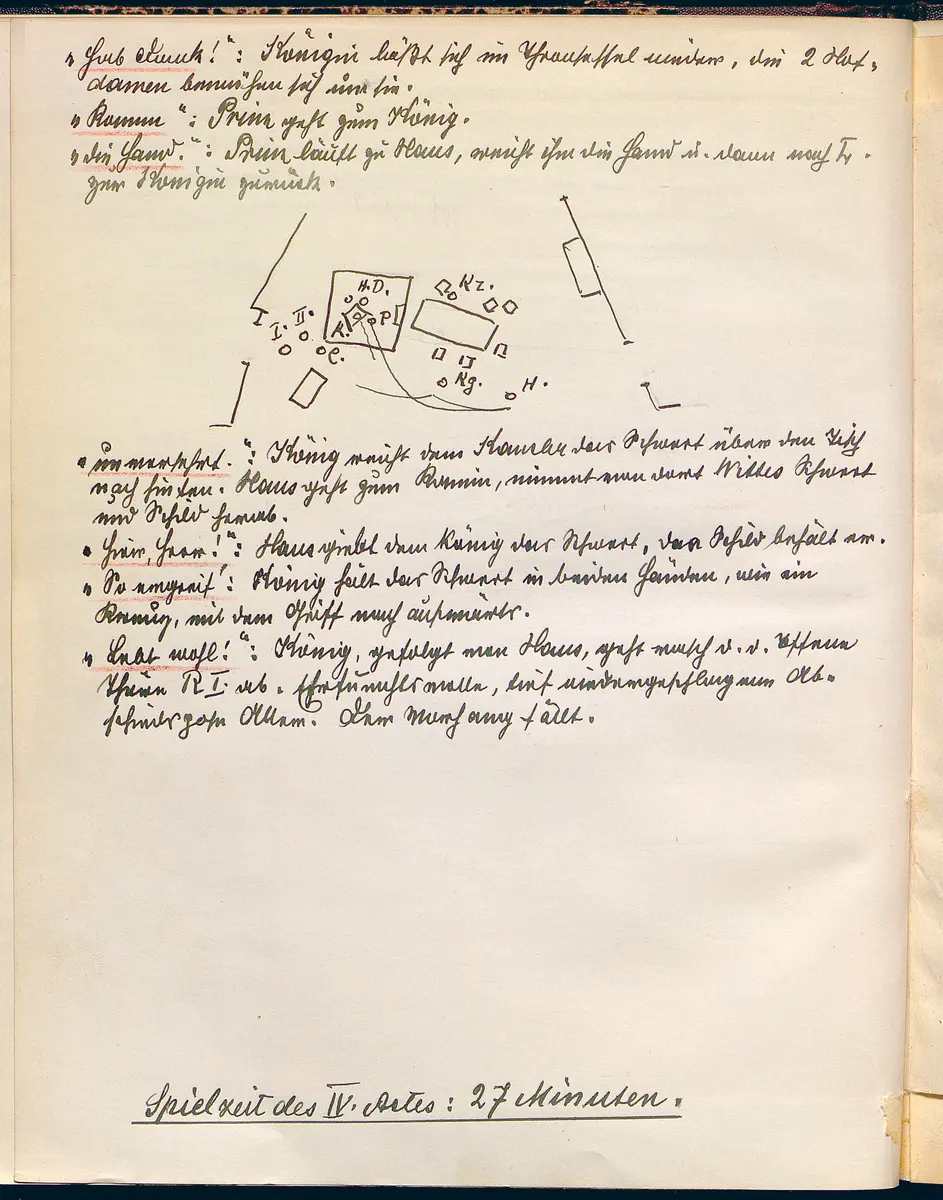 „Hab Dank!": Königin läßt sich im Thronsessel nieder, die 2 Hof-
damen bemühen sich um sie.
„Komm": Prinz geht zum König.
„die Hand.": Prinz läuft zu Hans, reicht ihm die Hand u. dann nach
zur Königin zurück.
H.D.
Kz.
I. II. K. P
C.
Kg. H.
„unversehrt.": König reicht dem Kanzler das Schwert über den Tisch
nach hinten. Hans geht zum Kamin, nimmt von dort Wittes Schwert
und Schild herab.
„Hier, Herr!": Hans giebt dem König das Schwert, das Schild behält er.
„So ergreif": König hält das Schwert in beiden Händen, wie ein
Kreuz, mit dem Griff nach aufwärts.
„Lebt wohl!": König, gefolgt von Hans, geht rasch d. d. offene
Thüre R I. ab. Ehrfurchtsvolle, tief niedergeschlagene Ab-
schiedspose Aller. Der Vorhang fällt.
Spielzeit des IV. Actes: 27 Minuten.